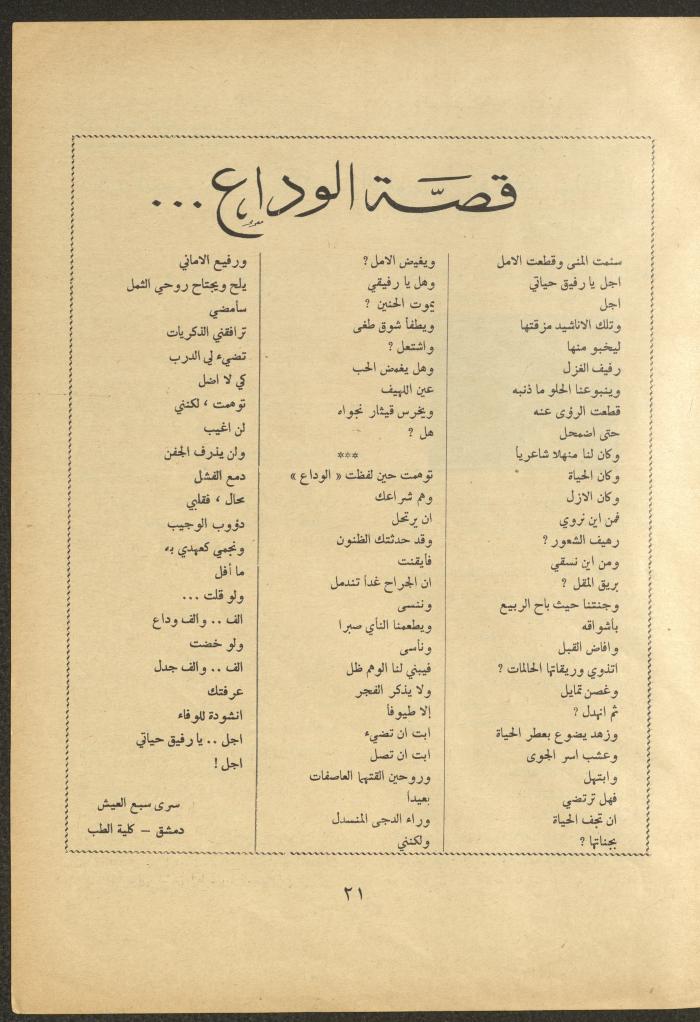 قصة الوداع ...
سئمت المنى وقطعت الامل
اجل يا رفيق حياتي
اجل
وتلك الاناشيد مزقتها
ليخبو منها
رفيف الغزل
وينبوعنا الحلو ما ذنبه
قطعت الرؤى عنه
حتى اضمحل
وكان لنا منهلا شاعرياً
وكان الحياة
وكان الازل
فمن اين نروي
رهيف الشعور ؟
ومن اين نسقي
بريق المقل ؟
وجنتنا حيث باح الربيع
بأشواقه
وافاض القبل
اتذوي وريقاتها الحالمات ؟
وغصن تمايل
ثم انهدل ؟
وزهد يضوع بعطر الحياة
وعشب اسر الجوى
وابتهل
فهل ترتضي
ان تجف الحياة
بجناتها ؟
ويغيض الامل ؟
وهل يا رفيقي
يموت الحنين ؟
ويطفأ شوق طغى
واشتعل ؟
وهل يغمض الحب
عين اللهيف
ويخرس قيثار نجواه
هل ؟
***
توهمت حين لفظت « الوداع »
وهم شراعك
ان يرتحل
وقد حدثتك الظنون
فأيقنت
ان الجراح غداً تندمل
وننسى
ويطعمنا النأي صبرا
ونأسى
فيبني لنا الوهم ظل
ولا يذكر الفجر
إلا طيوفاً
ابت ان تضيء
ابت ان تصل
وروحين القتهما العاصفات
بعيداً
وراء الدجى المنسدل
ولكنني
ورفيع الاماني
يلح ويجتاح روحي الثمل
سأمضي
ترافقني الذكريات
تضيء لي الدرب
كي لا اضل
توهمت ، لكنني
لن اغيب
ولن يذرف الجفن
دمع الفشل
محال ، فقلبي
دؤوب الوجيب
ونجمي كعهدي به
ما أفل
ولو قلت ...
الف .. والف وداع
ولو خضت
الف .. والف جدل
عرفتك
انشودة للوفاء
اجل .. يا رفيق حياتي
اجل !
سرى سبع العيش
دمشق – كلية الطب
٢١